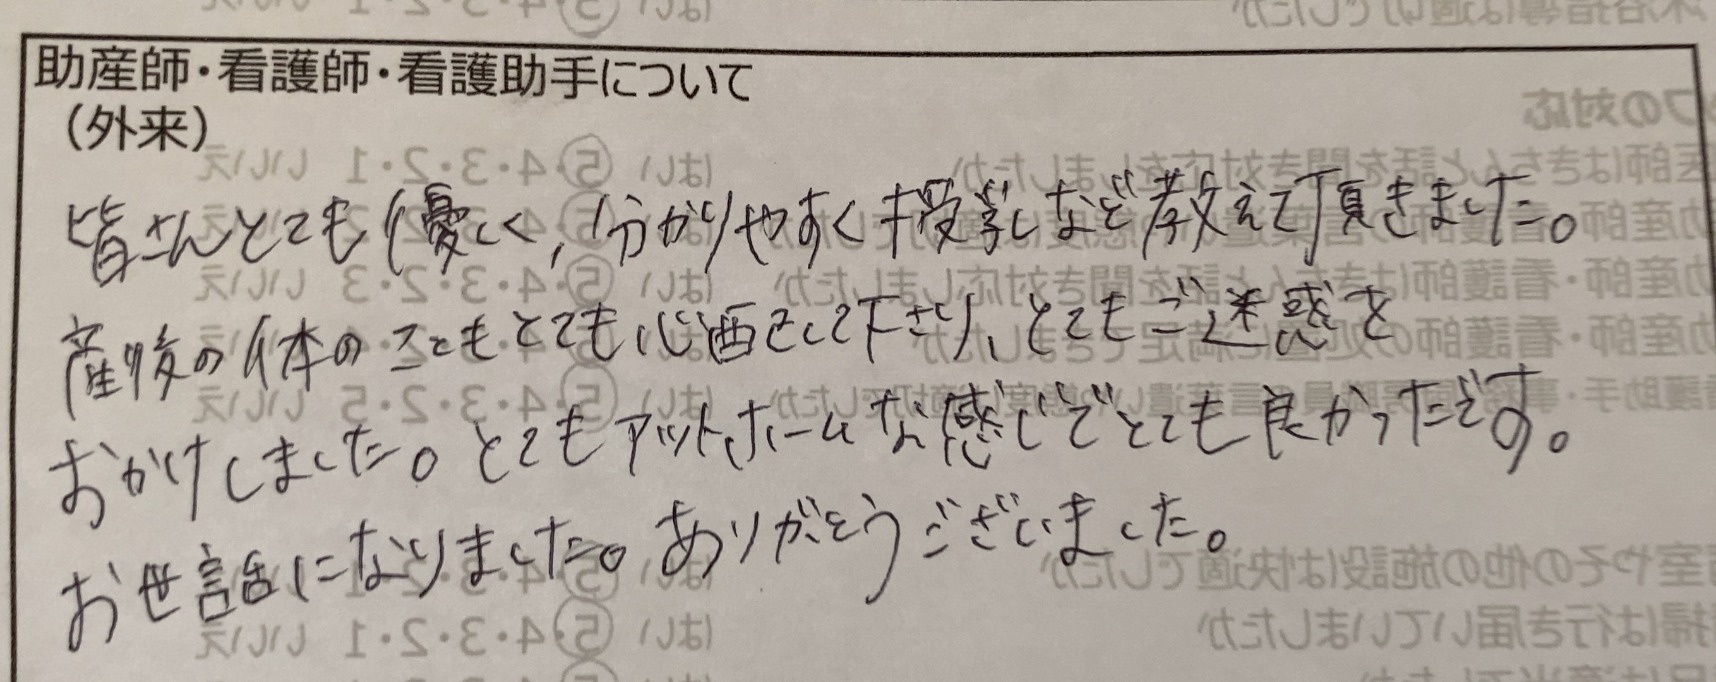 助産師・看護師・看護助手について
（外来）
皆さんとても優しく、分かりやすく授乳など教えて頂きました。
産後の体のこともとても心配して下さり、とてもご迷惑を
おかけしました。とてもアットホームな感じでとても良かったです。
お世話になりました。ありがとうございました。